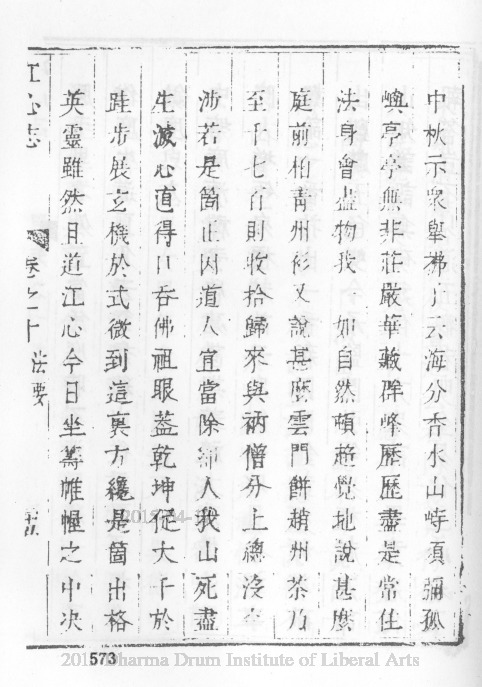 中秋示衆舉拂子云海分香水山峙須彌孤
嶼亭亭無非莊嚴華藏群峰歷歷盡是常住
法身會盡物我一如自然頓超覺地說甚麼
庭前柏青州衫又說甚麼雲門餅趙州茶乃
至千七百則收拾歸來與衲僧分上總沒
涉若是箇正因道人宜當除卻人我山死盡
生滅心直得口吞佛祖眼蓋乾坤從大千於
跬步展玄機於式微到這裏方纔是箇出格
英靈雖然且道江心今日坐籌帷幄之中决
江心志
卷之十 法要
573
Dharma Drum Institute of Liberal Arts